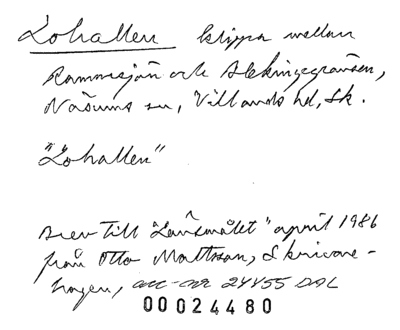 Lohallen klippa mellan
Rammsjön och Blekingegränsen,
Näsums sn, Villands hd, Sk.
"Lohallen"
Brev till "Länsmålet" april 1986
från Otto Mattsson, Skrivare-
hagen, acc-nr 24455 DAL
00024480